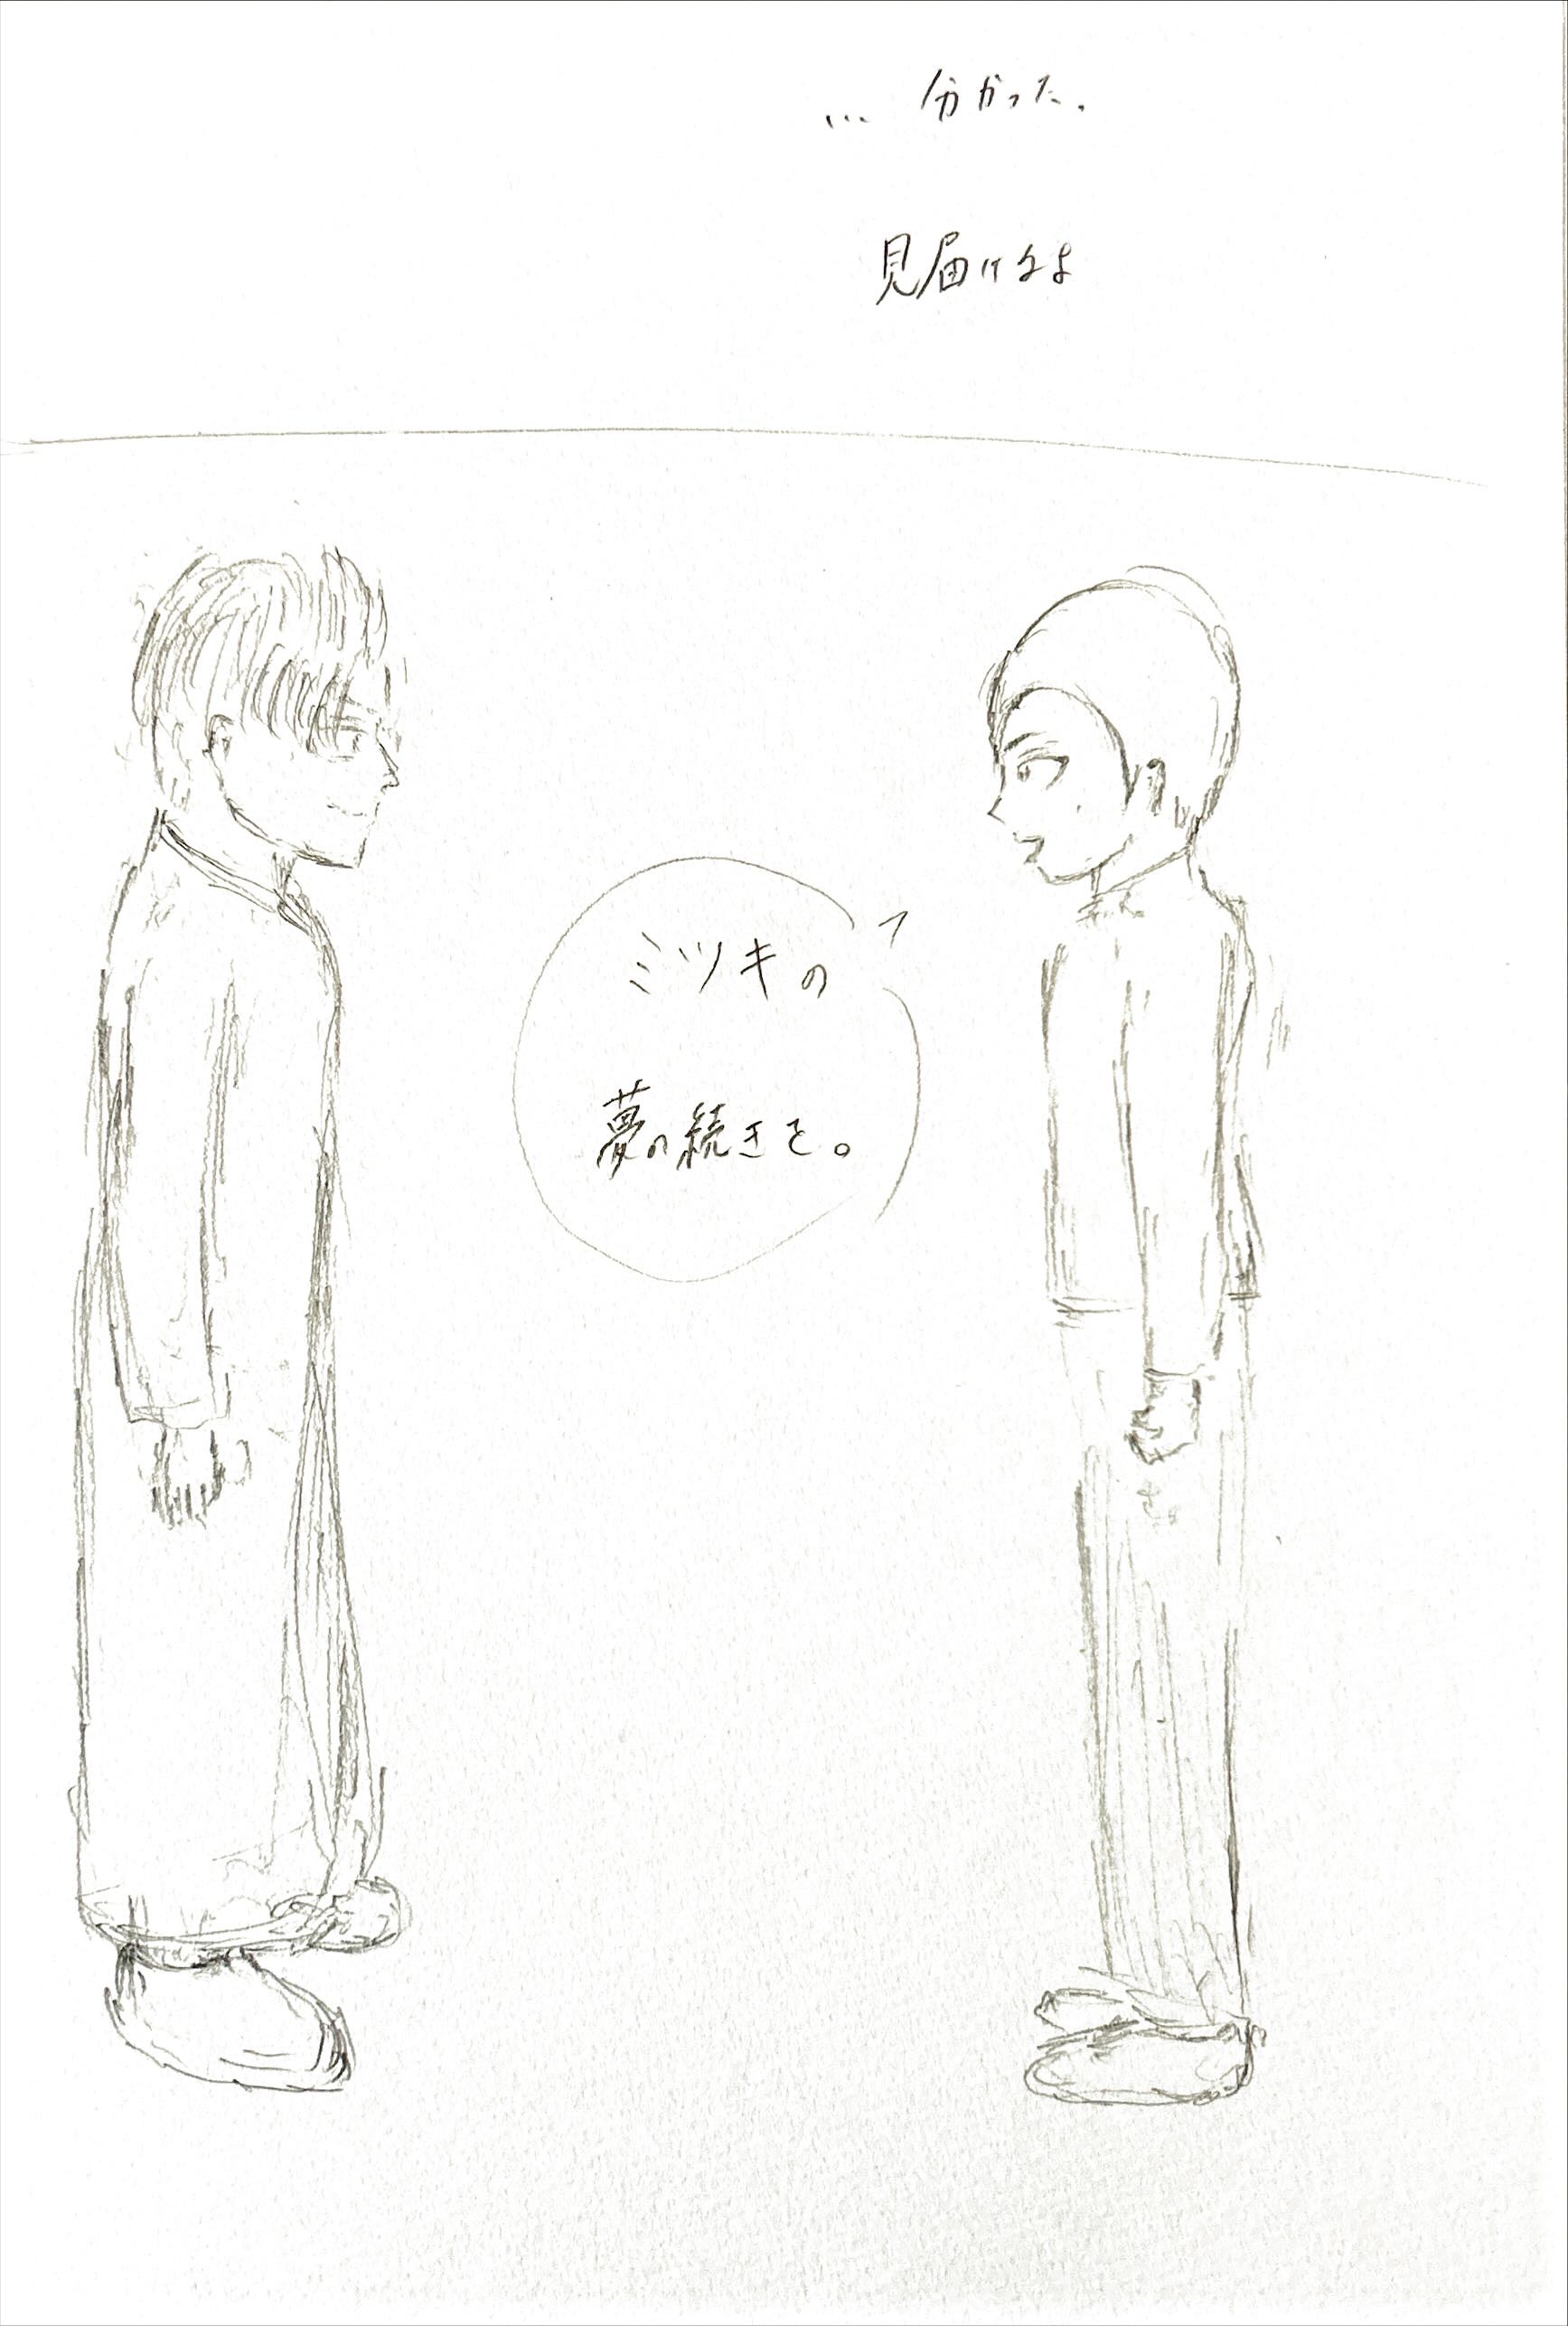 ... 分かった.
見届けるよ
ミツキの
夢の続きを。